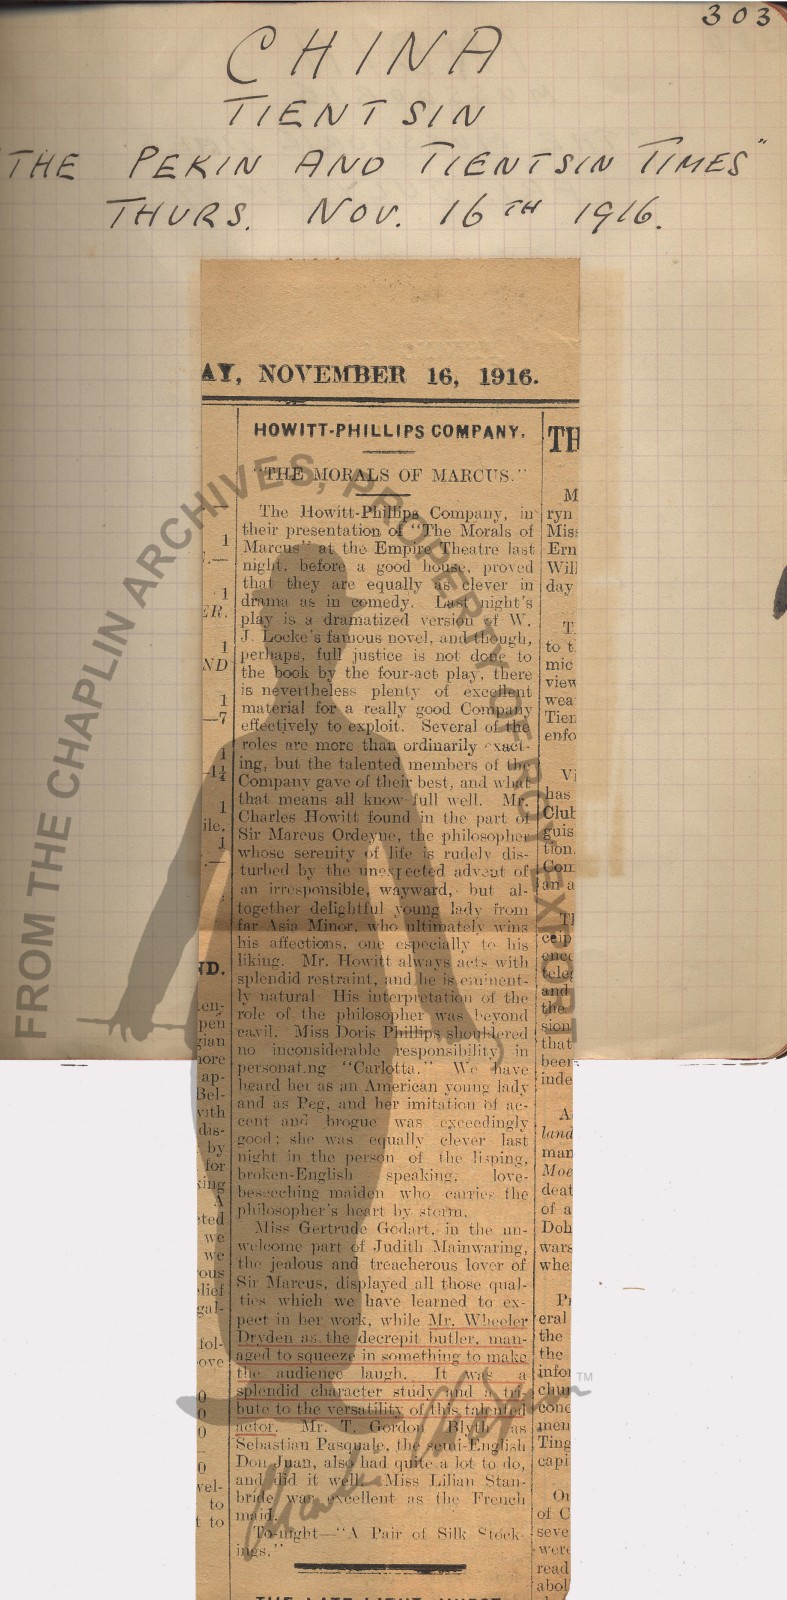 303
CHINA
TIENTSIN
"THE PEKIN AND TIENTSIN TIMES"
THURS. NOV. 16TH 1916.
AY, NOVEMBER 16, 1916.
HOWITT-PHILLIPS COMPANY.
"THE MORALS OF MARCUS."
The Howitt-Phillips Company, in
their presentation of "The Morals of
Marcus" at the Empire Theatre last
night, before a good house, proved
that they are equally as clever in
drama as in comedy. Last night's
play is a dramatized version of W.
J. Locke's famous novel, and though,
perhaps, full justice is not done to
the book by the four-act play, there
is nevertheless plenty of excellent
material for a really good Company
effectively to exploit. Several of the
roles are more than ordinarily exact-
ing, but the talented members of the
Company gave of their best, and what
that means all know full well. Mr.
Charles Howitt found in the part of
Sir Marcus Ordeyne, the philosopher
whose serenity of life is rudely dis-
turbed by the unexpected advent of
an irresponsible, wayward, but al-
together delightful young lady from
far Asia Minor, who ultimately wins
his affections, one especially to his
liking. Mr. Howitt always acts with
splendid restraint, and he is eminent-
ly natural His interpretation of the
role of the philosopher was beyond
cavil. Miss Doris Phillips shouldered
no inconsiderable responsibility in
personat.ng "Carlotta." We have
heard her as an American young lady
and as Peg, and her imitation of ac-
cent and brogue was exceedingly
good; she was equally clever last
night in the person of the lisping,
broken-English speaking, love-
beseeching maiden who carries the
philosopher's heart by storm.
Miss Gertrude Godart, in the un-
welcome part of Judith Mainwaring,
the jealous and treacherous lover of
Sir Marcus, displayed all those qual-
ties which we have learned to ex-
pect in her work, while Mr. Wheeler
Dryden as the decrepit butler, man-
aged to squeeze in something to make
the audience laugh. It was a
splendid character study and a tri-
bute to the versatility of this talented
actor. Mr. T. Gordon Blyth as
Sebastian Pasquale, the semi-English
Don Juan, also had quite a lot to do,
and did it well. Miss Lilian Stan-
bridge was excellent as the French
maid.
To-night—"A Pair of Silk Stock-
ings."
FROM THE CHAPLIN ARCHIVES, PROPERTY OF ROY EXPORT
Charles Chaplin
TM